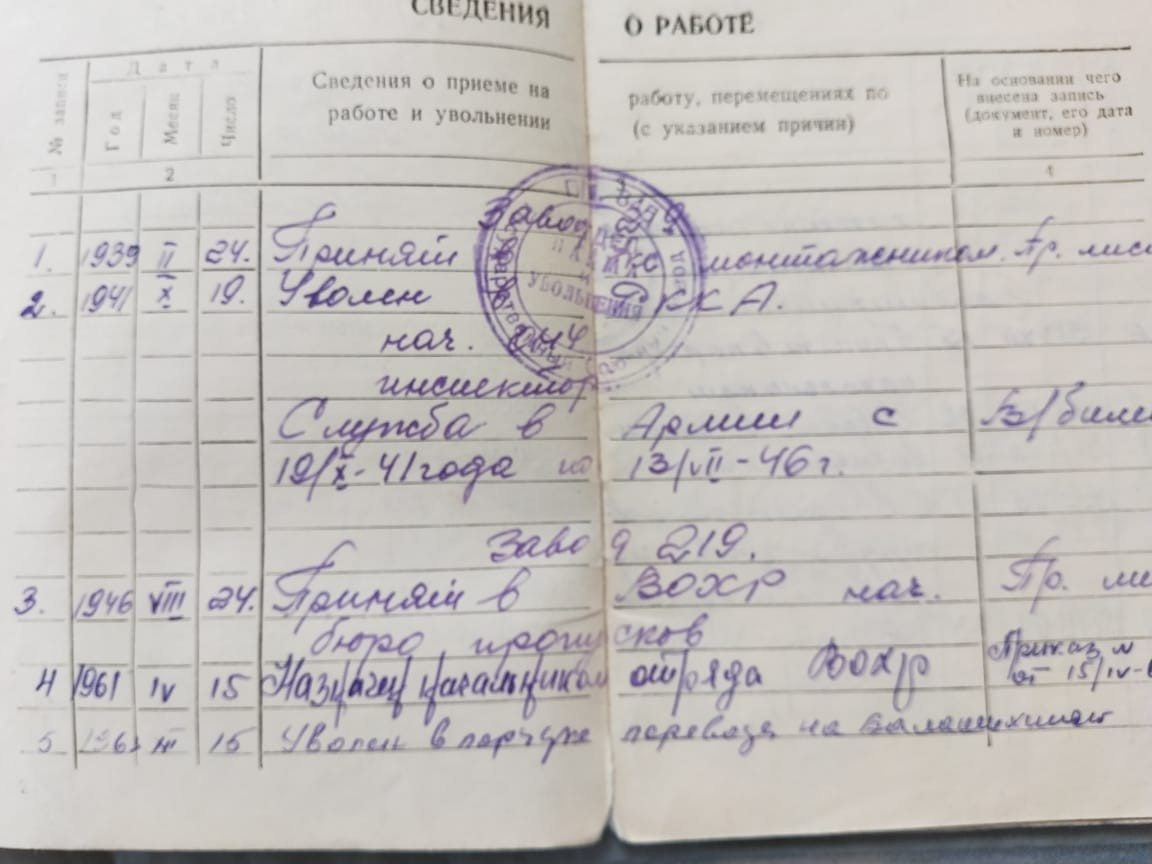 СВЕДЕНИЯ О РАБОТЕ
№ записи
Дата
Год
Месяц
Число
Сведения о приеме на работу, перемещениях по
работе и увольнении (с указанием причин)
На основании чего
внесена запись
(документ, его дата
и номер)
1 2 4
Завод
1. 1939 II 24. Принят монтажником. Пр. лис
2. 1941 X 19. Уволен РККА.
нач.
инспектор
Служба в Армии с В/биле
19/X-41 года по 13/VII-46 г.
Завод 219.
3. 1946 VIII 24. Принят в ВОХР нач. Пр. ли
бюро пропусков
4 1961 IV 15 Назначен начальником отряда ВОХР Приказ №
от 15/IV-6
5 15 Уволен в порядке перевода на
УВОЛЬНЕНИЯ